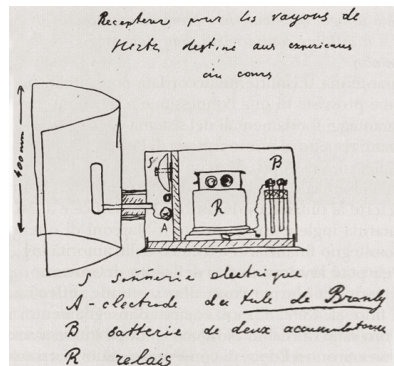 Recepteur pour les rayons de
Hertz destiné aux experiences
du cours
400 mm
S
A
R
B
S sonnerie electrique
A - electrode du tube de Branly
B batterie de deux accumulateurs
R relais